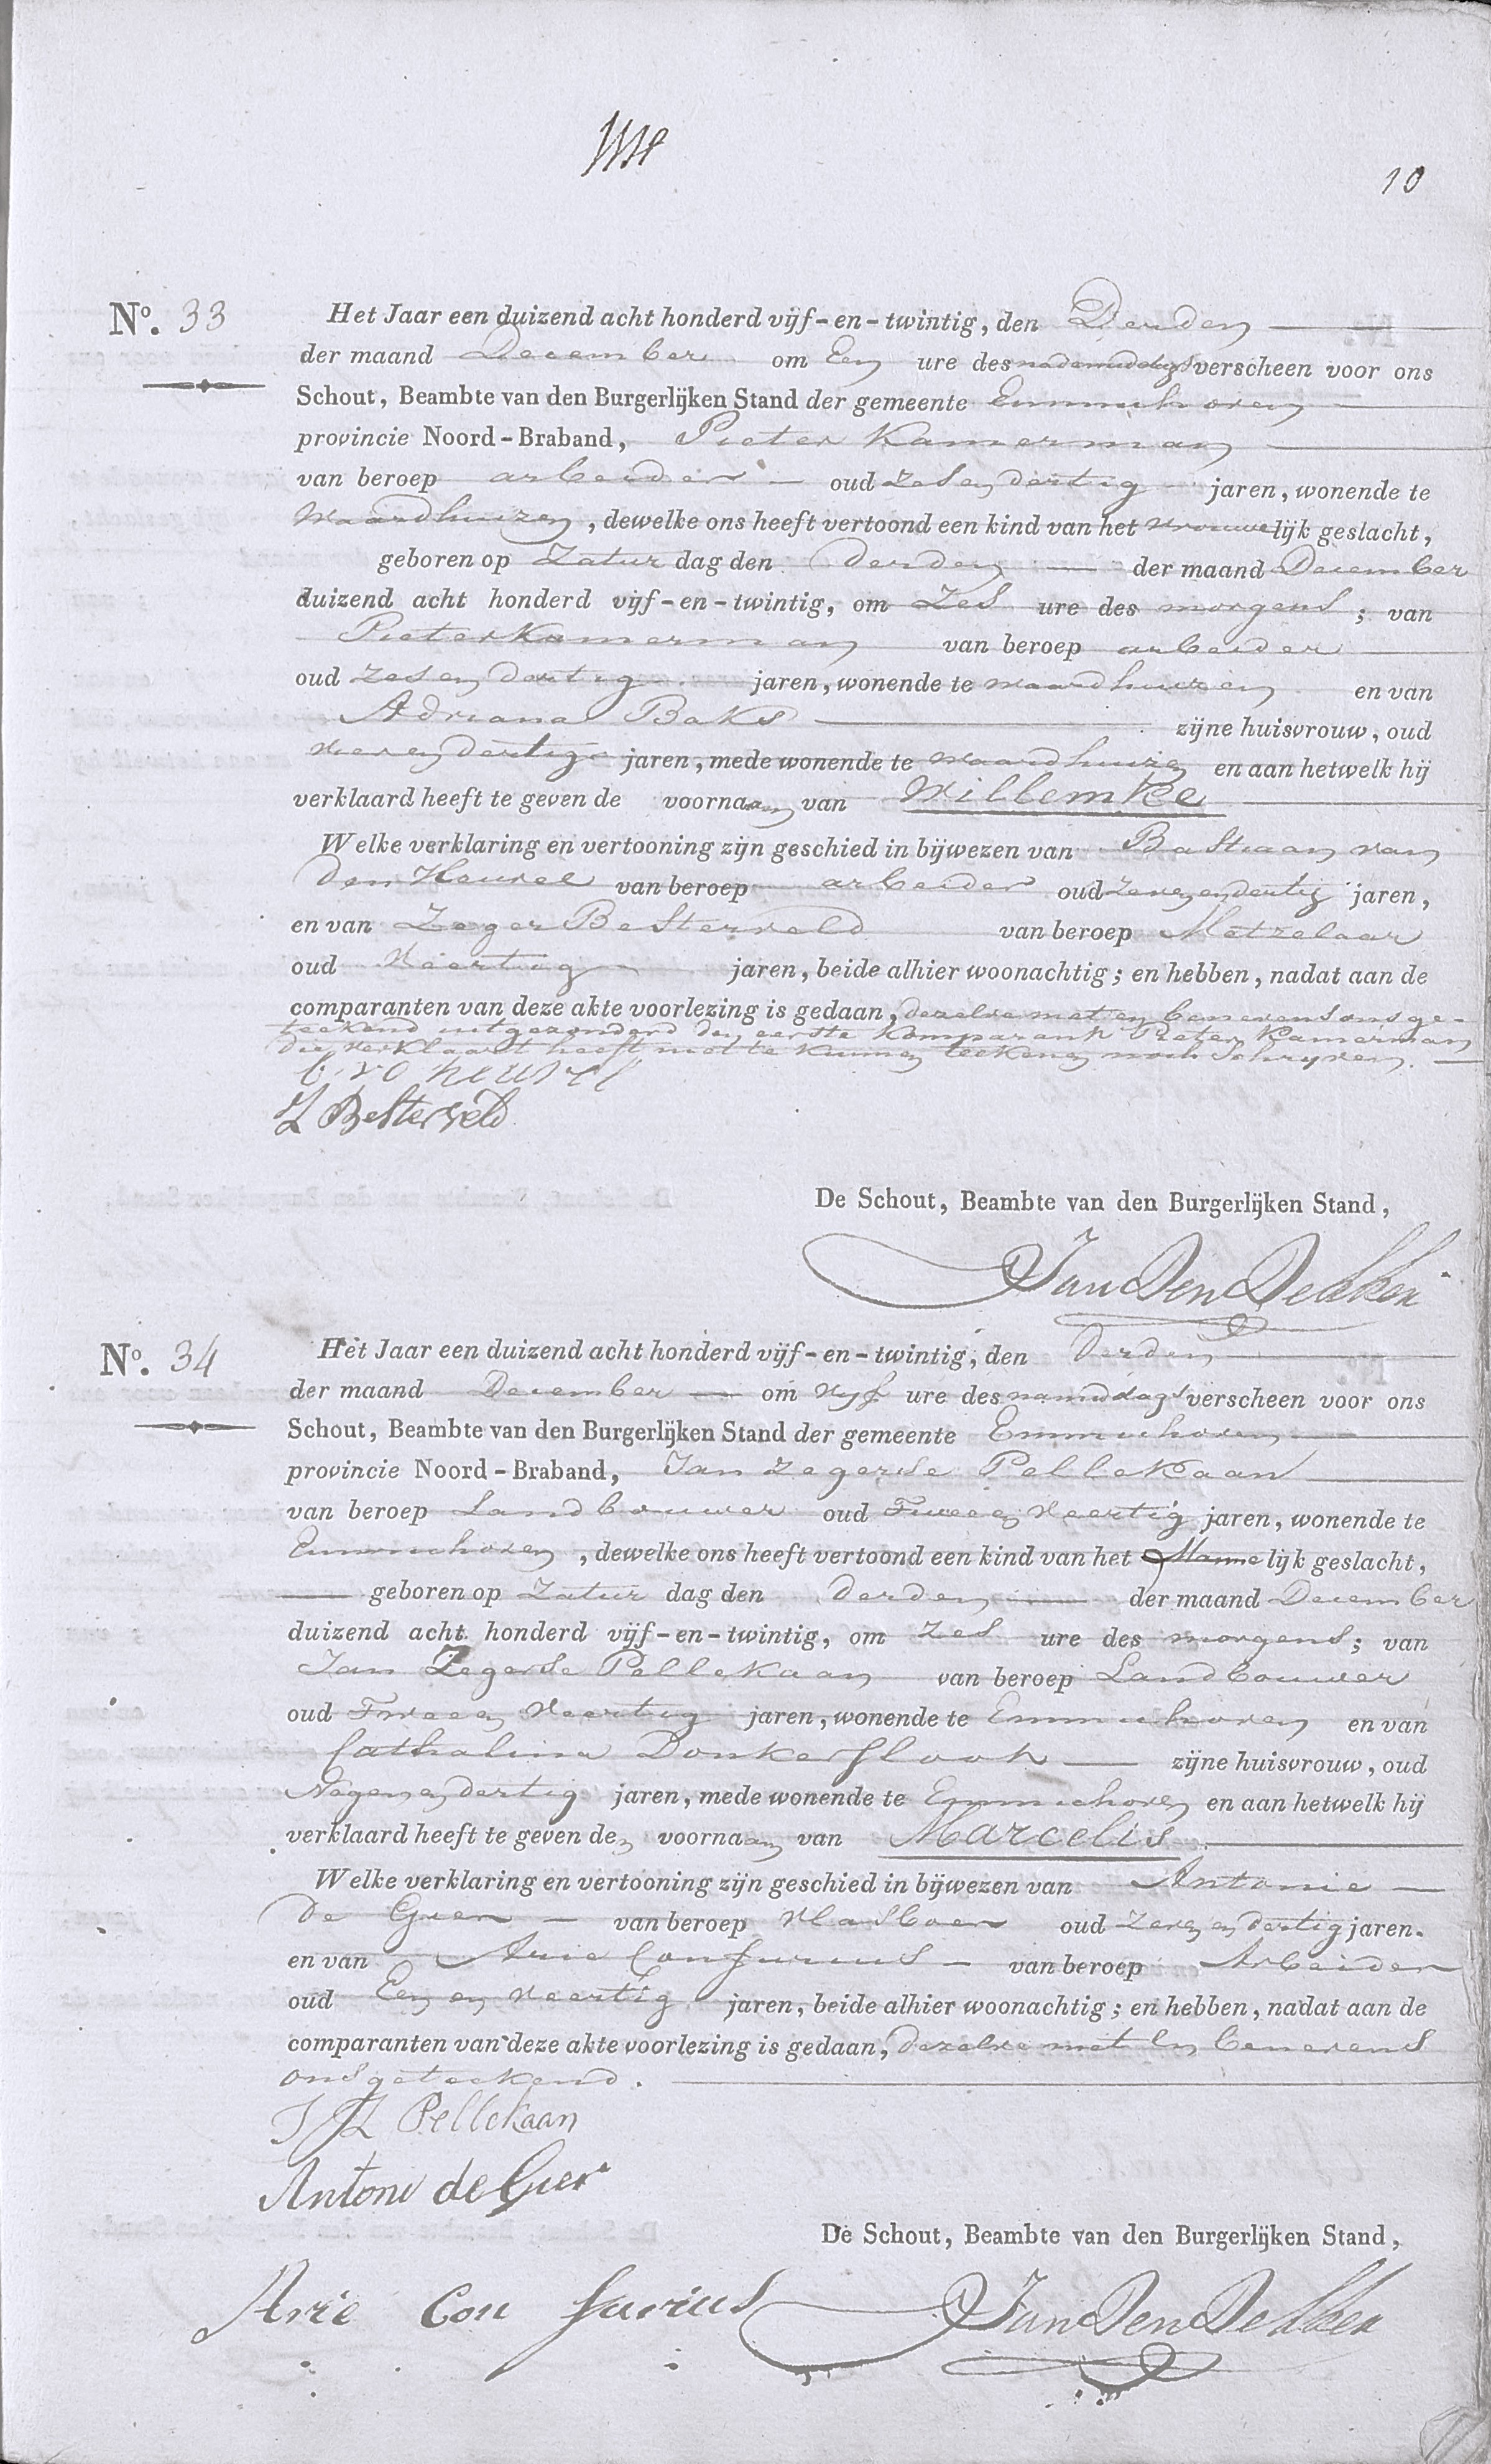 10
Nº. 33
Het Jaar een duizend acht honderd vijf-en-twintig, den Derden
der maand December om Een ure des nademiddags verscheen voor ons
Schout, Beambte van den Burgerlijken Stand der gemeente Emmichoven
provincie Noord-Braband, Pieter Kamerman
van beroep arbeider oud zes en dertig jaren, wonende te
Waardhuizen, dewelke ons heeft vertoond een kind van het vrouwelijk geslacht,
geboren op Zaturdag den derden der maand December
duizend acht honderd vijf-en-twintig, om Zes ure des morgens; van
Pieter Kamerman van beroep arbeider
oud zes en dertig jaren, wonende te waardhuizen en van
Adriana Baks zijne huisvrouw, oud
vier en dertig jaren, mede wonende te waardhuizen en aan hetwelk hij
verklaard heeft te geven de voornaam van Willemke
Welke verklaring en vertooning zijn geschied in bijwezen van Bastiaan van
den Heuvel van beroep arbeider oud zeven en dertig jaren,
en van Zeger Besterveld van beroep Metzelaar
oud Veertig jaren, beide alhier woonachtig; en hebben, nadat aan de
comparanten van deze akte voorlezing is gedaan, dezelve met en benevens ons ge-
teekend uitgezonderd den eerste Komparant Pieter Kamerman
die verklaart heeft niet te kunnen teekenen noch Schryven.
b. vd heuvel
Z Besterveld
De Schout, Beambte van den Burgerlijken Stand,
Jan Den Dekker
Nº. 34
Het Jaar een duizend acht honderd vijf-en-twintig, den Derden
der maand December om vyf ure des namiddags verscheen voor ons
Schout, Beambte van den Burgerlijken Stand der gemeente Emmichoven
provincie Noord-Braband, Jan Zegerse Pellekaan
van beroep Landbouwer oud Twee en Veertig jaren, wonende te
Emmichoven, dewelke ons heeft vertoond een kind van het Mannelijk geslacht,
geboren op Zaturdag den derden der maand December
duizend acht honderd vijf-en-twintig, om zes ure des morgens; van
Jan Zegerse Pellekaan van beroep Landbouwer
oud Twee en Veertig jaren, wonende te Emmichoven en van
Cathalina Donkersloot zijne huisvrouw, oud
Negen en dertig jaren, mede wonende te Emmichoven en aan hetwelk hij
verklaard heeft te geven den voornaam van Marcelis
Welke verklaring en vertooning zijn geschied in bijwezen van Antonie
de Gier van beroep Vlasboer oud zeven en dertig jaren.
en van Arie Confurius van beroep Arbeider
oud Een en Veertig jaren, beide alhier woonachtig; en hebben, nadat aan de
comparanten van deze akte voorlezing is gedaan, dezelve met en benevens
ons geteekend.
J Z Pellekaan
Antoni de Gier
De Schout, Beambte van den Burgerlijken Stand,
Arie Con furius
Jan Den Dekker